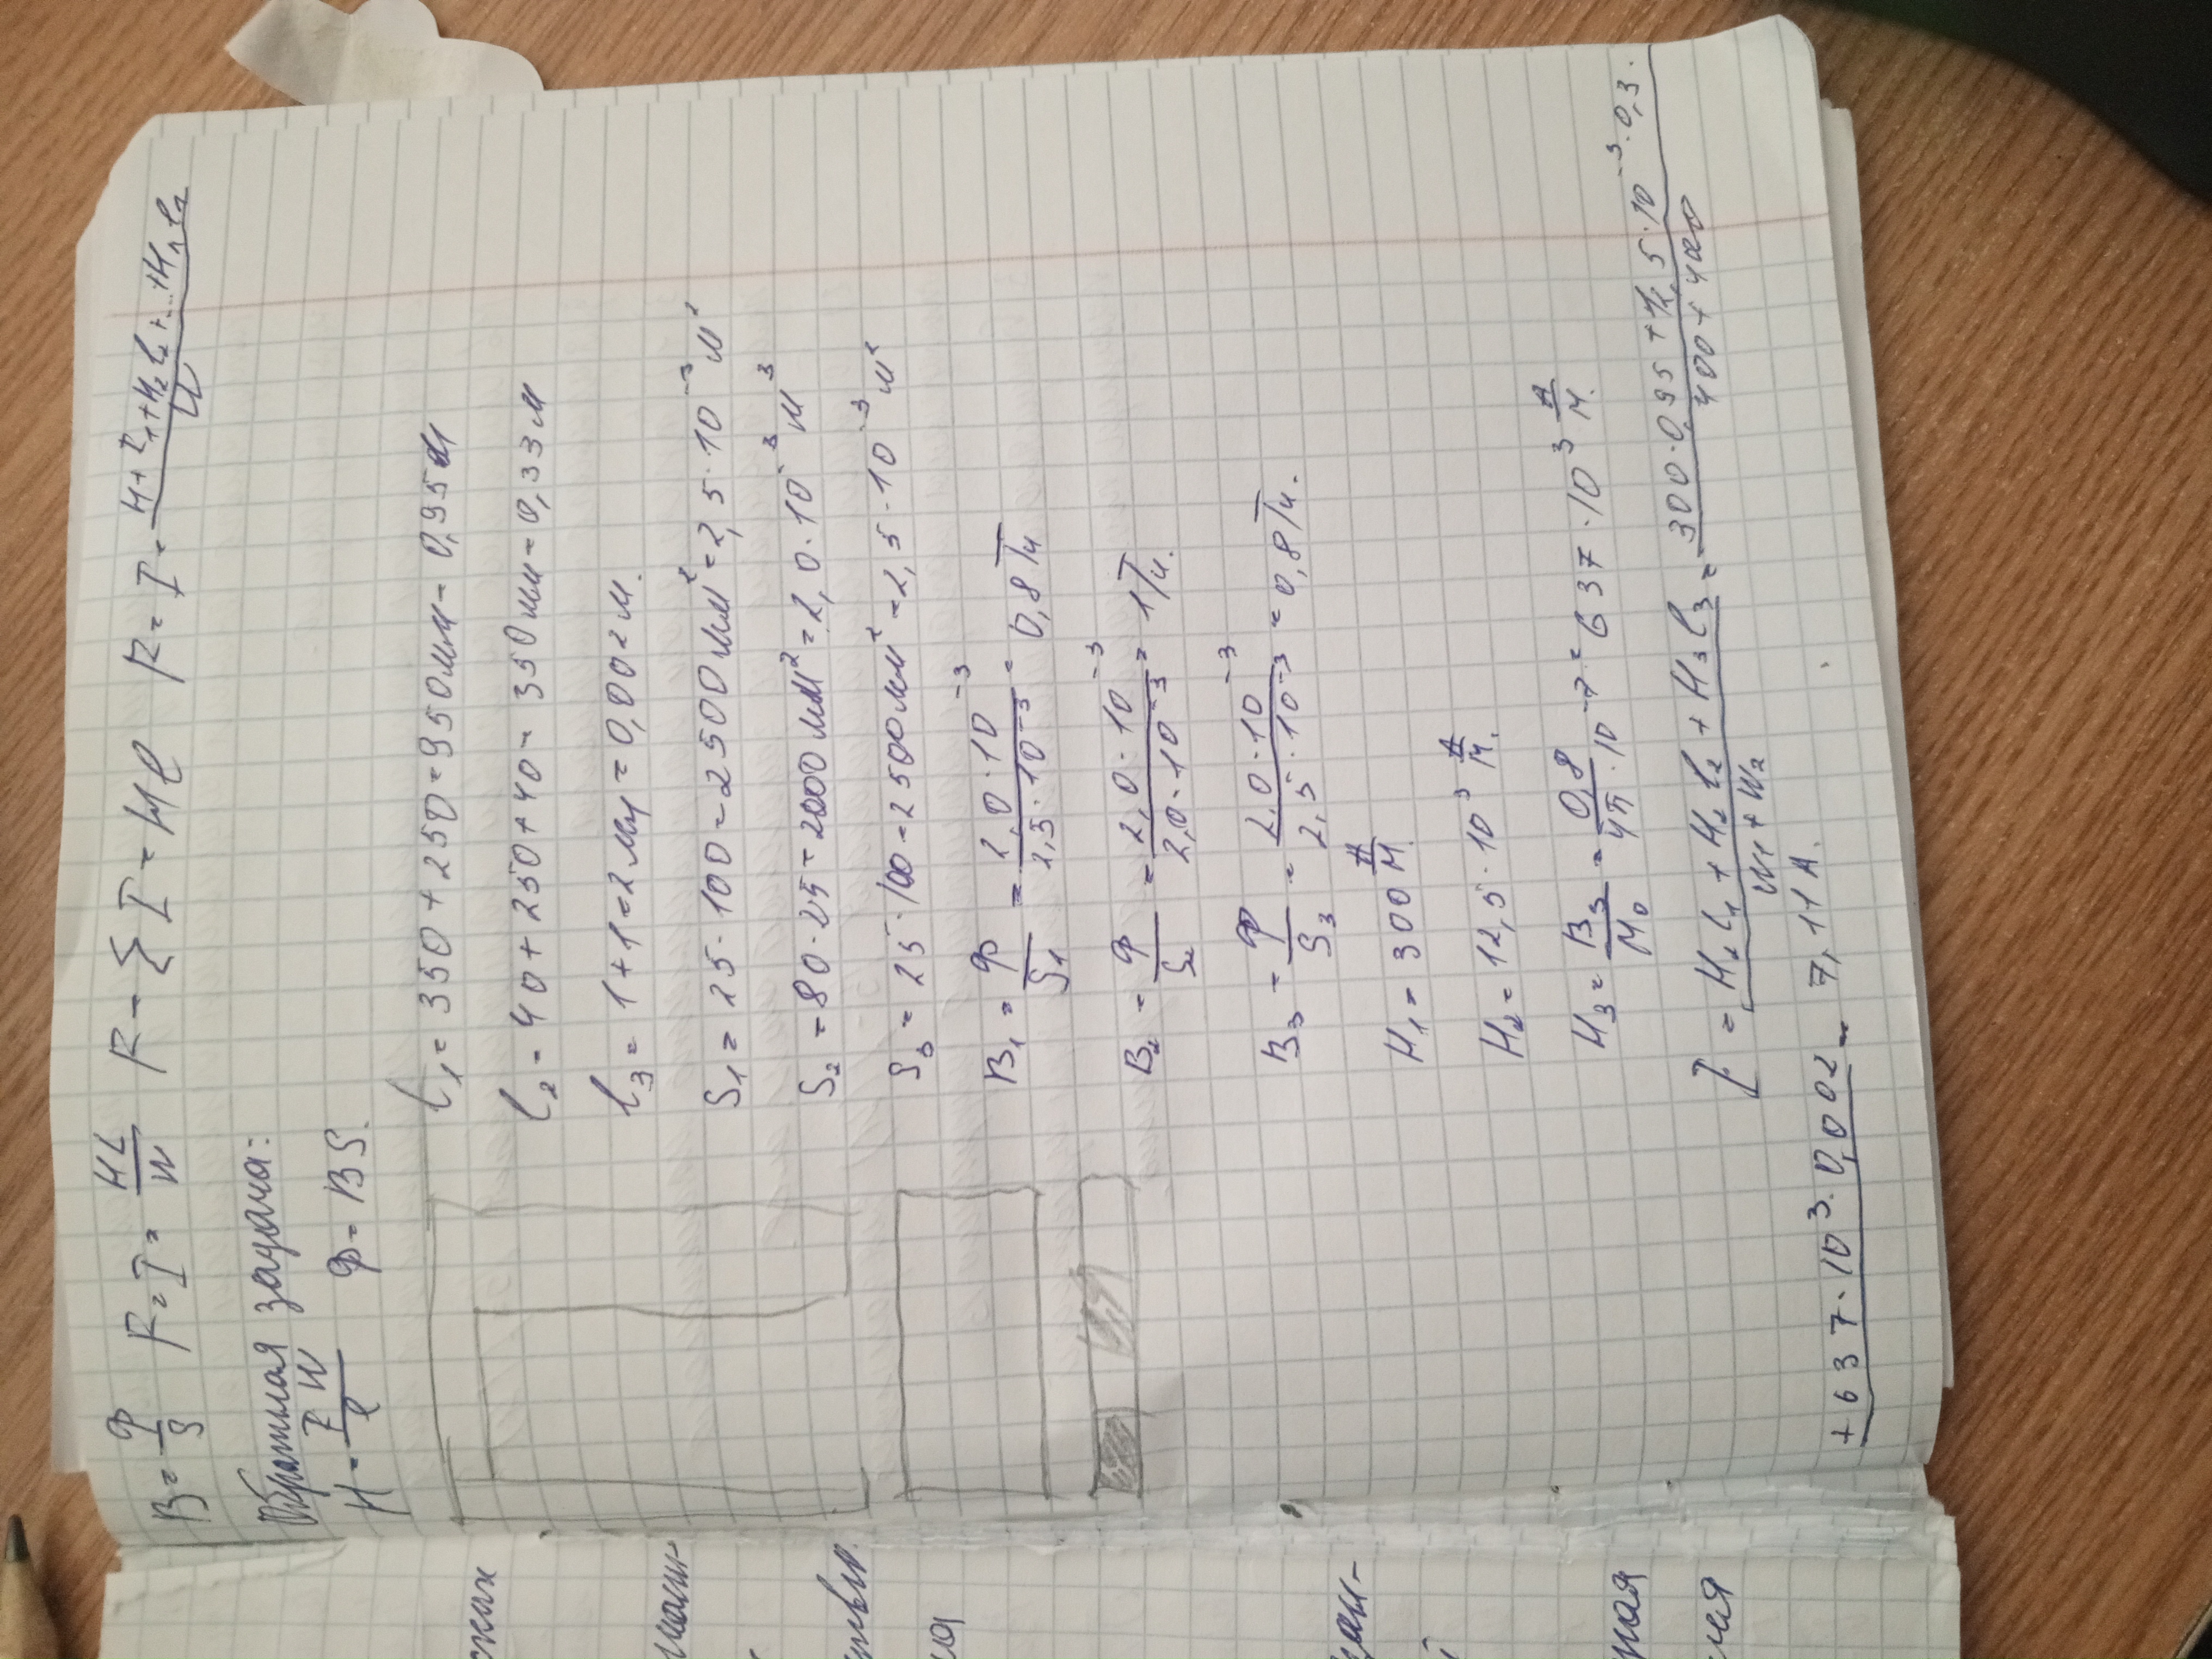 B = Ф/S F = I = HL/W F - Σ I = Hl F = I = H+l₁+H₂l₂+...+Hₙlₙ/W
Обратная задача:
H = IW/l Ф = BS.
l₁ = 350 + 250 = 950 мм = 0,95 м
l₂ = 40 + 250 + 40 = 350 мм = 0,33 м
l₃ = 1 + 1 = 2 мм = 0,002 м.
S₁ = 25 · 100 = 2500 мм² = 2,5 · 10⁻³ м²
S₂ = 80 · 25 = 2000 мм² = 2,0 · 10⁻³ м³
S₃ = 25 · 100 = 2500 мм² = 2,5 · 10⁻³ м²
B₁ = Ф/S₁ = 2,0 · 10⁻³/2,5 · 10⁻³ = 0,8 Тл
B₂ = Ф/S₂ = 2,0 · 10⁻³/2,0 · 10⁻³ = 1 Тл.
B₃ = Ф/S₃ = 2,0 · 10⁻³/2,5 · 10⁻³ = 0,8 Тл.
H₁ = 300 А/м.
H₂ = 12,5 · 10³ А/м.
H₃ = B₃/М₀ = 0,8/4π · 10⁻⁷ = 637 · 10³ А/м.
I = H₁l₁ + H₂l₂ + H₃l₃/W₁ + W₂ = 300 · 0,95 + 12,5 · 10⁻³ · 0,3./400 + 400
+ 637 · 10³ · 0,002 = 7,11 А.
ских
ния
ная